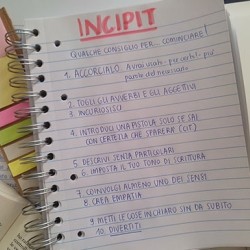 INCIPIT
QUALCHE CONSIGLIO PER COMINCIARE!
1. ACCORCIALO
parole del necessario
2. TOGLI GLI AVVERBI E GLI AGGETTIVI
3. INCURIOSISCI
4. INTRODUCI UNA PISTOLA SOLO SE SAI
CON CERTEZZA CHE SPARERÀ (CIT)
5. DESCRIVI SENZA PARTICOLARI
6. IMPOSTA IL TUO TONO DI SCRITTURA
7. COINVOLGI ALMENO UNO DEI SENSI
8. CREA EMPATIA
9. METTI LE COSE IN CHIARO SIN DA SUBITO
10. DIVERTITI